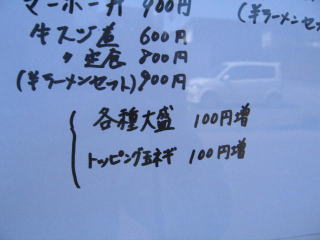 マーボー丼 900円
(半ラーメンセッ
牛スジ 600円
〃定食 800円
(半ラーメンセット)900円
各種大盛 100円増
トッピング玉ネギ 100円増